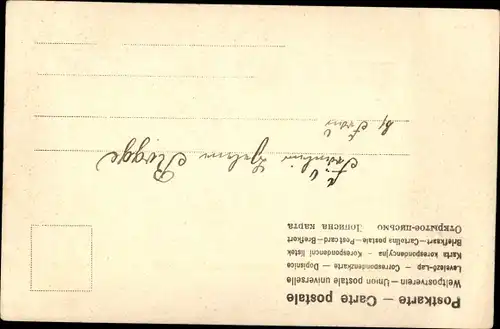 Postkarte — Carte postale
Weltpostverein — Union postale universelle
Levelező-Lap — Correspondenzkarte — Dopisnice
Karta korespondencyjna - Korespondencni listek
Briefkaart — Cartolina postale — Post card — Brefkort
Открытое-письмо Дописна карта
Fräulein Helene Rogge